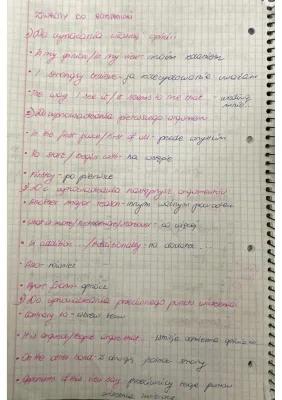 Zwroty do rozprawki
1) Do wyrażania własnej opinii
• In my opinion/In my view - moim zdaniem
• I strongly believe - ja zdecydowanie uważam
• The way I see it/It seems to me that - według mnie
2) Do wprowadzania pierwszego argumentu
• In the first place/First of all - przede wszystkim
• To start/begin with - na wstępie
• Firstly - po pierwsze
3) Do wprowadzania następnych argumentów
• Another major reason - innym ważnym powodem
• What is more/Furthermore/Moreover - co więcej
• In addition.../Additionally - na dodatek...
• Also - również
• Apart from - oprócz
4) Do wprowadzania przeciwnego punktu widzenia
• Contrary to - wbrew temu
• It is argued/People argue that - istnieje odmienna
• On the other hand - z drugiej strony
• Opponents of this view say - przeciwnicy tego punktu
widzenia